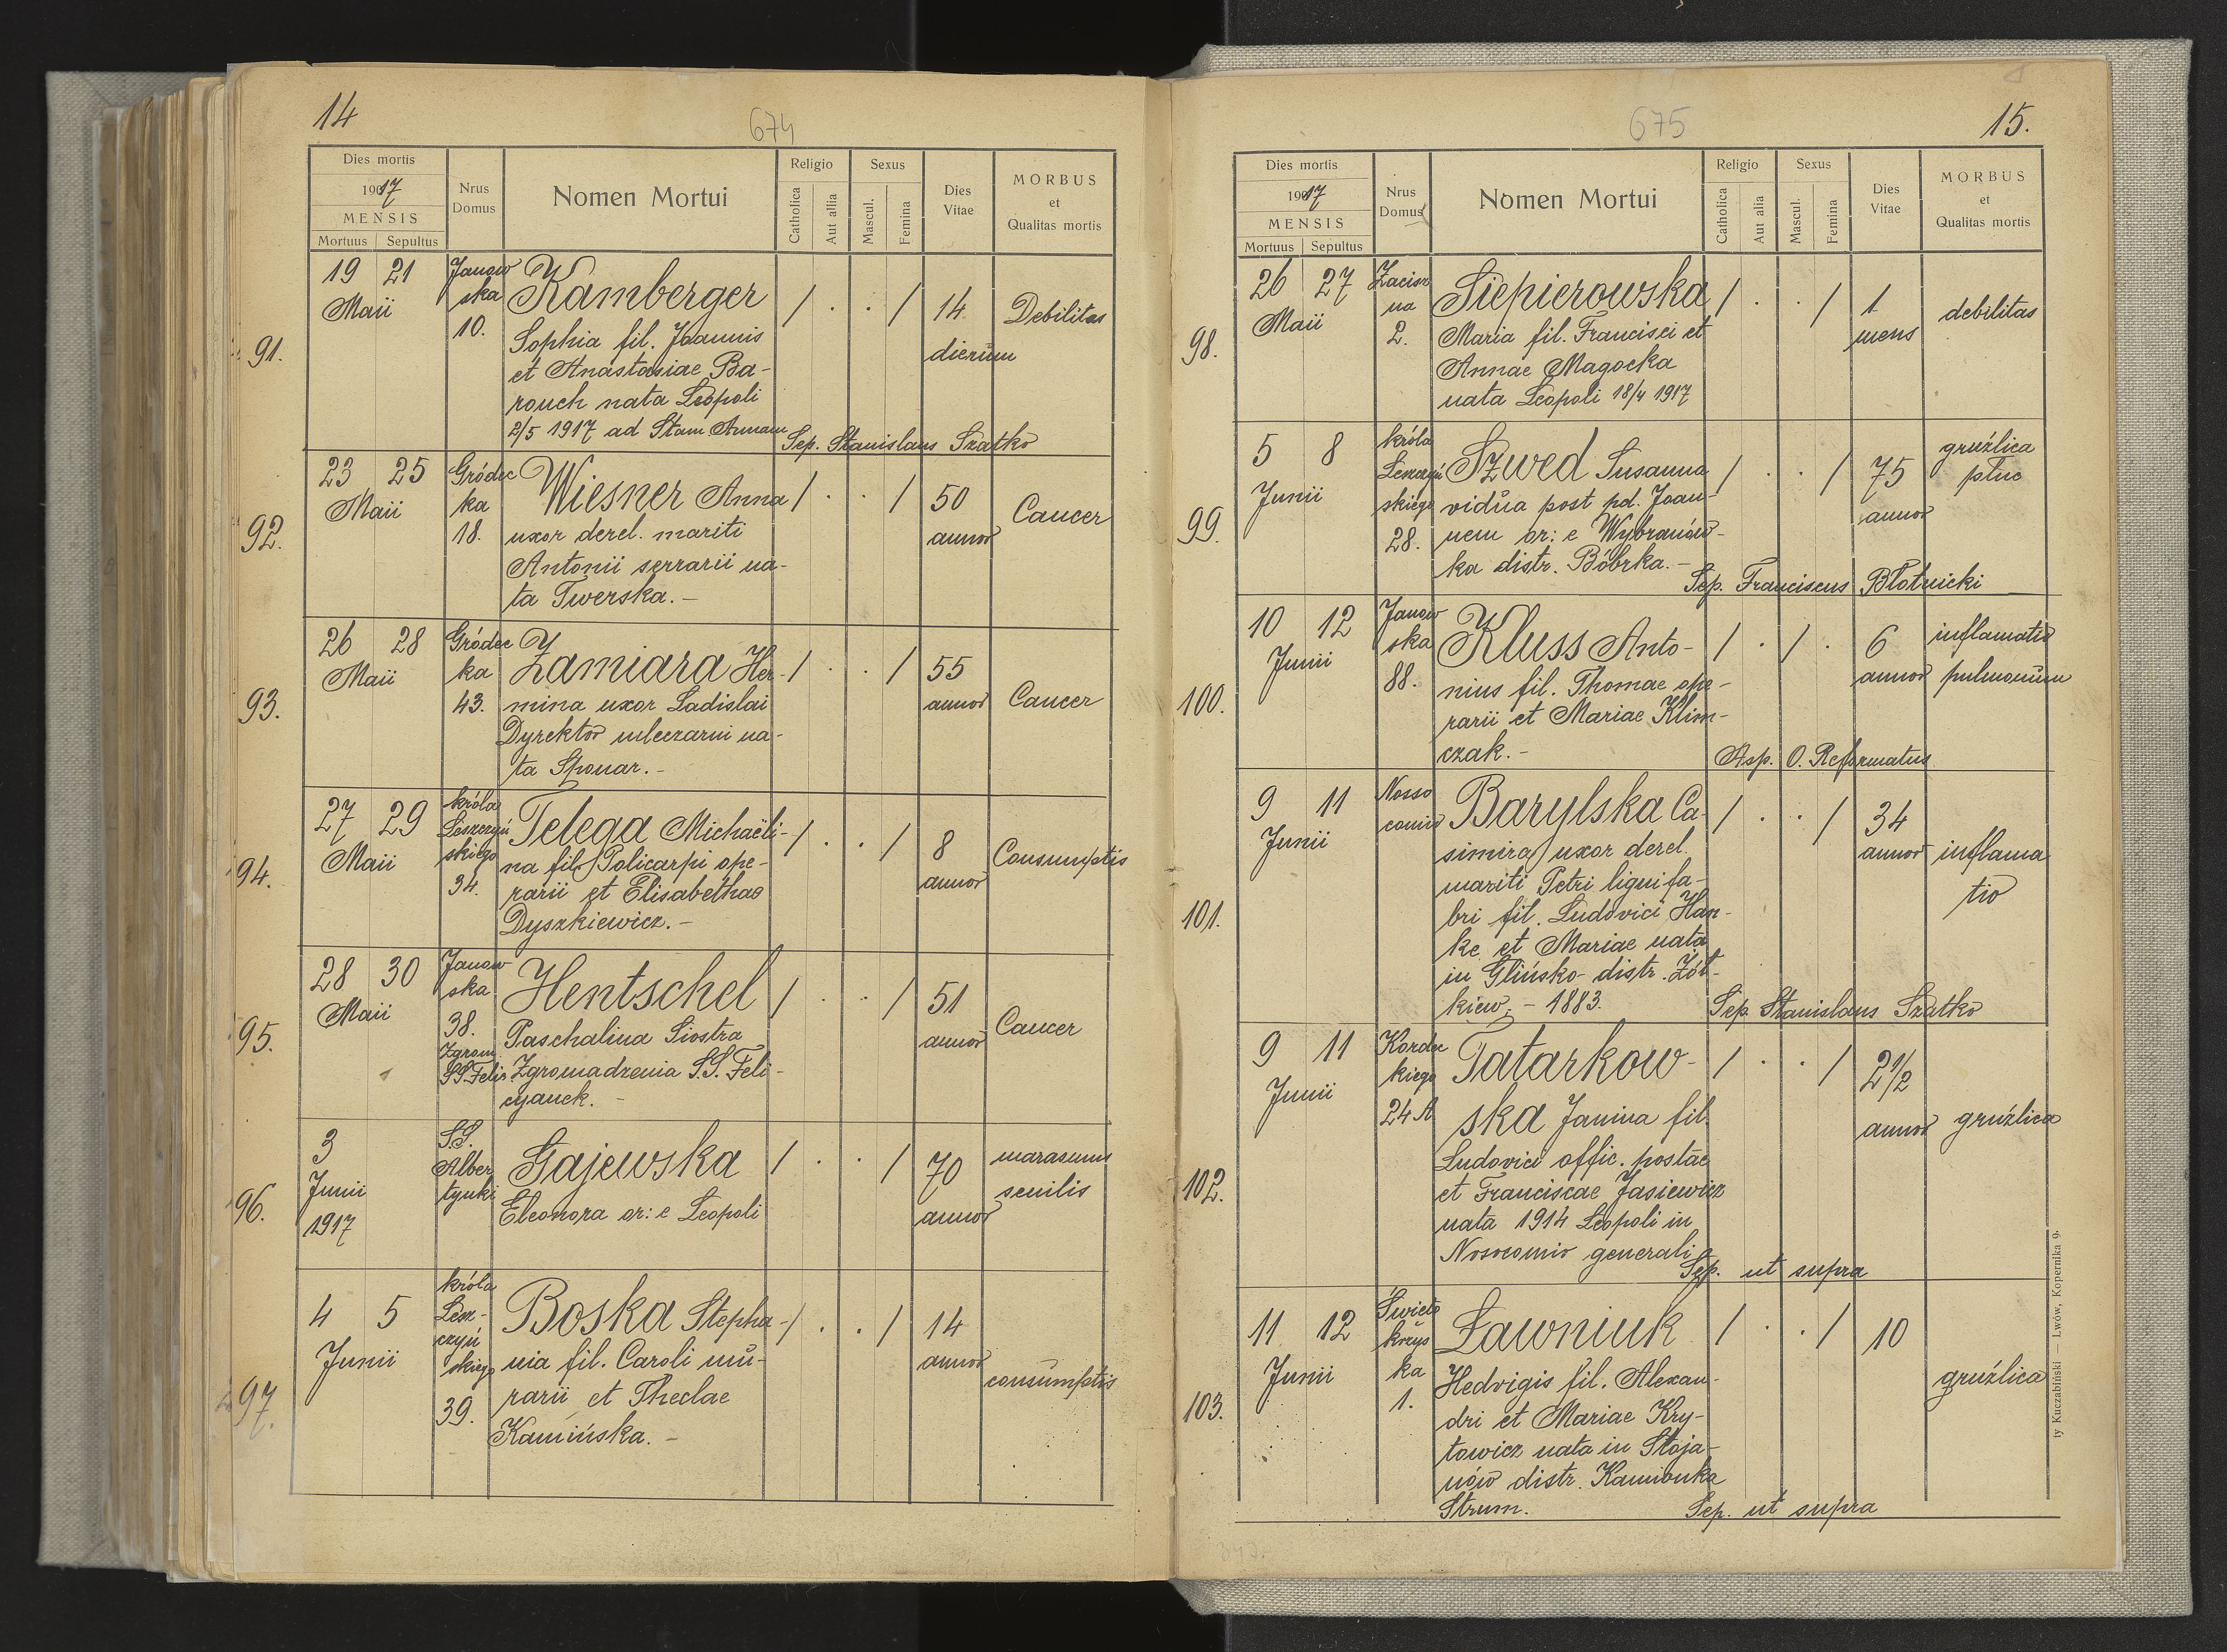 14
674
Dies mortis
1917
MENSIS
Mortuus Sepultus
Nrus Domus
Nomen Mortui
Religio
Catholica
Aut allia
Sexus
Mascul.
Femina
Dies Vitae
MORBUS
et
Qualitas mortis
91.
19 21
Maii
Janow
ska
10.
Kamberger
Sophia fil. Joannis
et Anastasiae Ba-
rouch nata Leopoli
2/5 1917 ad Stam Annam
/ . . /
14
dierum
Debilitas
Sep. Stanislaus Szatko
92.
23 25
Maii
Gródec
ka
18.
Wiesner Anna
uxor derel. mariti
Antonii serrarii na-
ta Twerska.-
/ . . /
50
annor
Cancer
93.
26 28
Maii
Gródec
ka
43.
Zamiara Her-
mina uxor Ladislai
Dyrektor mleczarni na-
ta Sponar.-
/ . . /
55
annor
Cancer
94.
27 29
Maii
króla
Leszczyń
skiego
34.
Telega Michaëli-
na fil. Policarpi ope-
rarii et Elisabethae
Dyszkiewicz.-
/ . . /
8
annor
Consumptis
95.
28 30
Maii
Janow
ska
38.
Zgrom.
SS. Felic
Hentschel
Paschalina Siostra
Zgromadzenia S.S. Feli-
cyanek.-
/ . . /
51
annor
Cancer
96.
3
Junii
1917
S.S.
Alber
tynki
Gajewska
Eleonora or: e Leopoli
/ . . /
70
annor
marasmus
senilis
97.
4 5
Junii
króla
Lesz-
czyń
skiego
39.
Boska Stepha-
nia fil. Caroli mu-
rarii et Theclae
Kamińska.-
/ . . /
14
annor
consumptis
675
15.
Dies mortis
1917
MENSIS
Mortuus Sepultus
Nrus Domus
Nomen Mortui
Religio
Catholica
Aut alia
Sexus
Mascul.
Femina
Dies Vitae
MORBUS
et
Qualitas mortis
98.
26 27
Maii
Zacisz
na
2.
Siepierowska
Maria fil. Francisci et
Annae Magocka
nata Leopoli 18/4 1917
/ . . /
1
mens
debilitas
99.
5 8
Junii
króla
Leszczyń
skiego
28.
Szwed Susanna
vidua post pd. Joan-
nem or: e Wybranów-
ka distr. Bóbrka.-
/ . . /
75
annor
gruźlica
płuc
Sep. Franciscus Błotnicki
100.
10 12
Junii
Janow
ska
88.
Kluss Anto-
nius fil. Thomae ope-
rarii et Mariae Klim-
czak.-
/ . / .
6
annor
inflamatio
pulmonum
Asp. O. Reformatus
101.
9 11
Junii
Noso
comio
Barylska Ca-
simira uxor derel.
mariti Petri lignifa-
bri fil. Ludovici Han-
ke et Mariae nata
in Glińsko distr. Żół-
kiew.- 1883.
/ . . /
34
annor
inflama
tio
Sep. Stanislaus Szatko
102.
9 11
Junii
Kordec
kiego
24 A
Tatarkow-
ska Janina fil.
Ludovici offic. postae
et Franciscae Jasiewicz
nata 1914 Leopoli in
Nosocomio generali
/ . . /
2 1/2
annor
gruźlica
Sep. ut supra
103.
11 12
Junii
Święto
krzys
ka
1.
Ławniuk
Hedvigis fil. Alexan-
dri et Mariae Kry-
towicz nata in Stoja-
nów distr. Kamionka
Strum.
/ . . /
10
gruźlica
Sep. ut supra
ty Kuczabiński — Lwów, Kopernika 9.